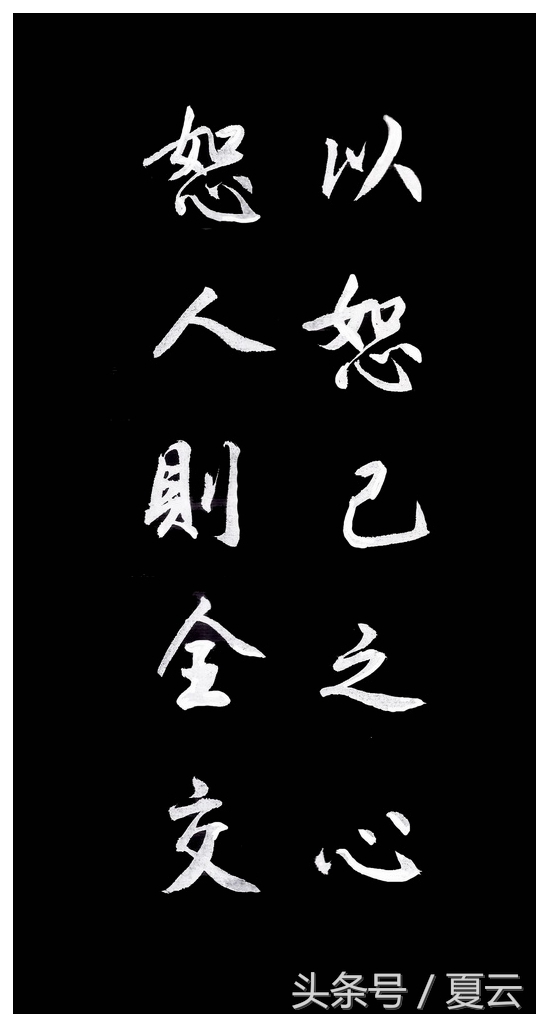 以恕己之心
恕人則全交
头条号 / 夏云